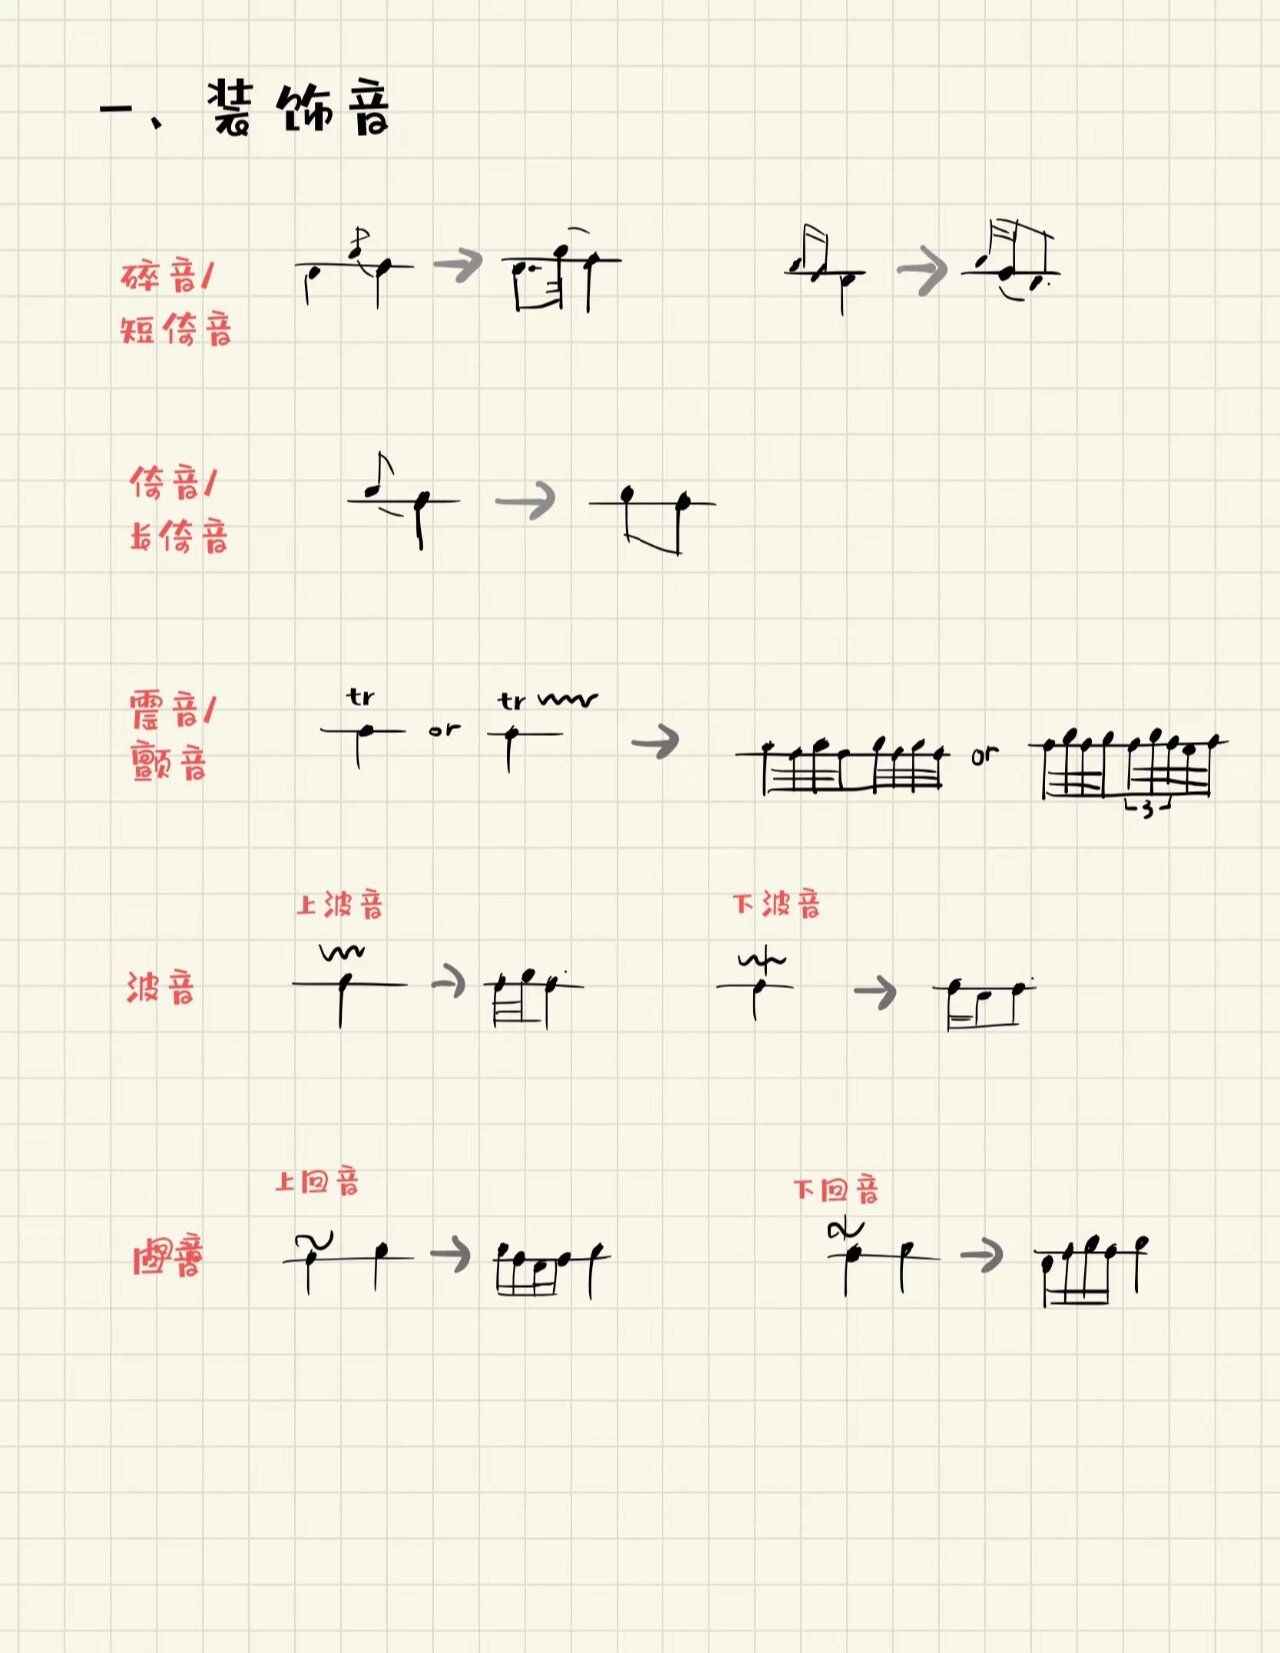 一、装饰音
碎音/
短倚音
倚音/
长倚音
震音/
颤音
tr or tr or
3
上波音 下波音
波音
上回音 下回音
回音